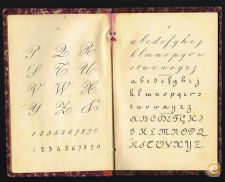 P Q R
S T U
V W X
Y Z &
1 2 3 4 5 6 7 8 9 0
1 2 3 4 5 6 7 8 9 0
a b c d e f g h i j
k l m n o p q r s
t u v w x y z
a b c d e f g h i j
k l m n o p q r s
t u v w x y z
A B C D E F G H I
J K L M N O P Q R
S T U V X Y Z